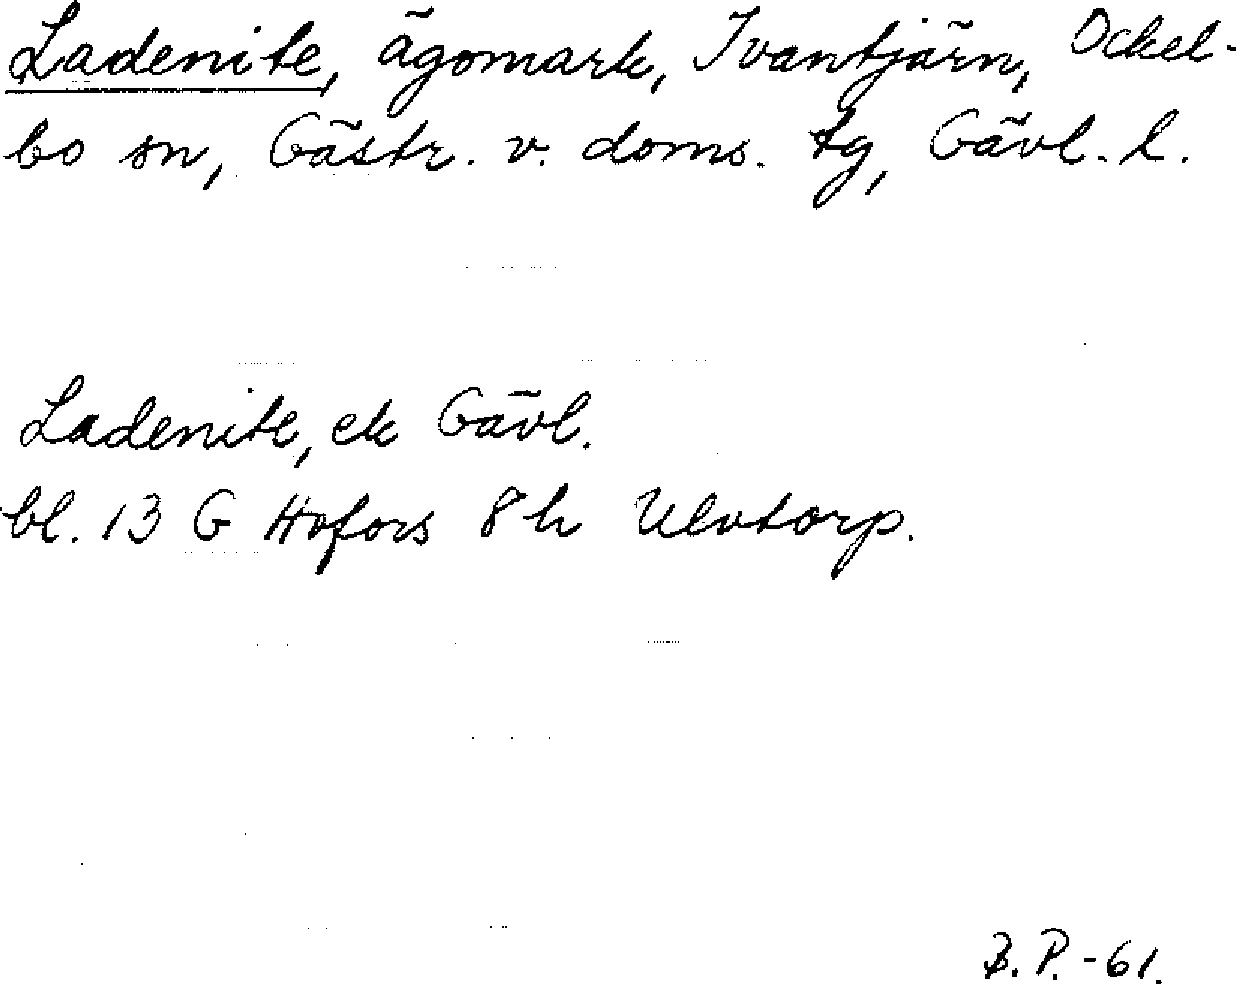 Ladenite, ägomark, Ivantjärn, Ockel-
bo sn, Gästr. v. doms. tg, Gävl. l.
Ladenite, ek Gävl.
bl. 13 G Hofors 8h Ulvtorp.
B. P. -61.